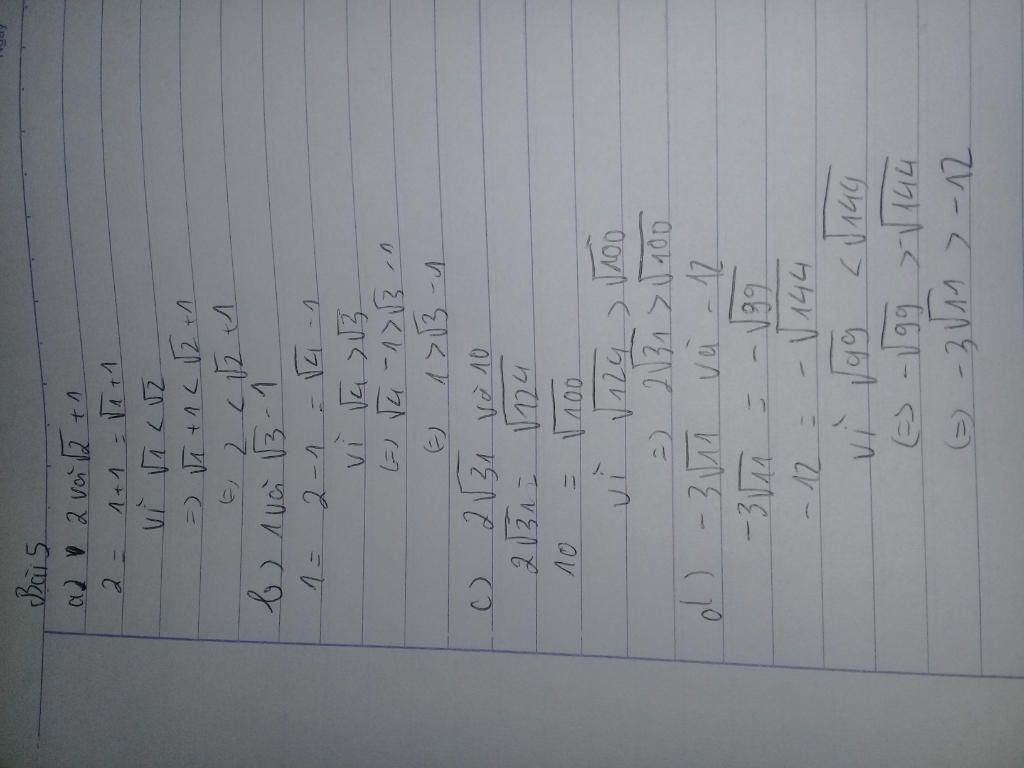 Bài 5
a) 2 và √2 + 1
2 = 1+1 = √1 + 1
vì √1 < √2
=> √1 + 1 < √2 + 1
(=) 2 < √2 + 1
b) 1 và √3 - 1
1 = 2 - 1 = √4 - 1
vì √4 > √3
(=) √4 - 1 > √3 - 1
(=) 1 > √3 - 1
c) 2√31 và 10
2√31 = √124
10 = √100
vì √124 > √100
=> 2√31 > √100
d) -3√11 và -12
-3√11 = -√99
-12 = -√144
vì √99 < √144
(=) -√99 > -√144
(=) -3√11 > -12